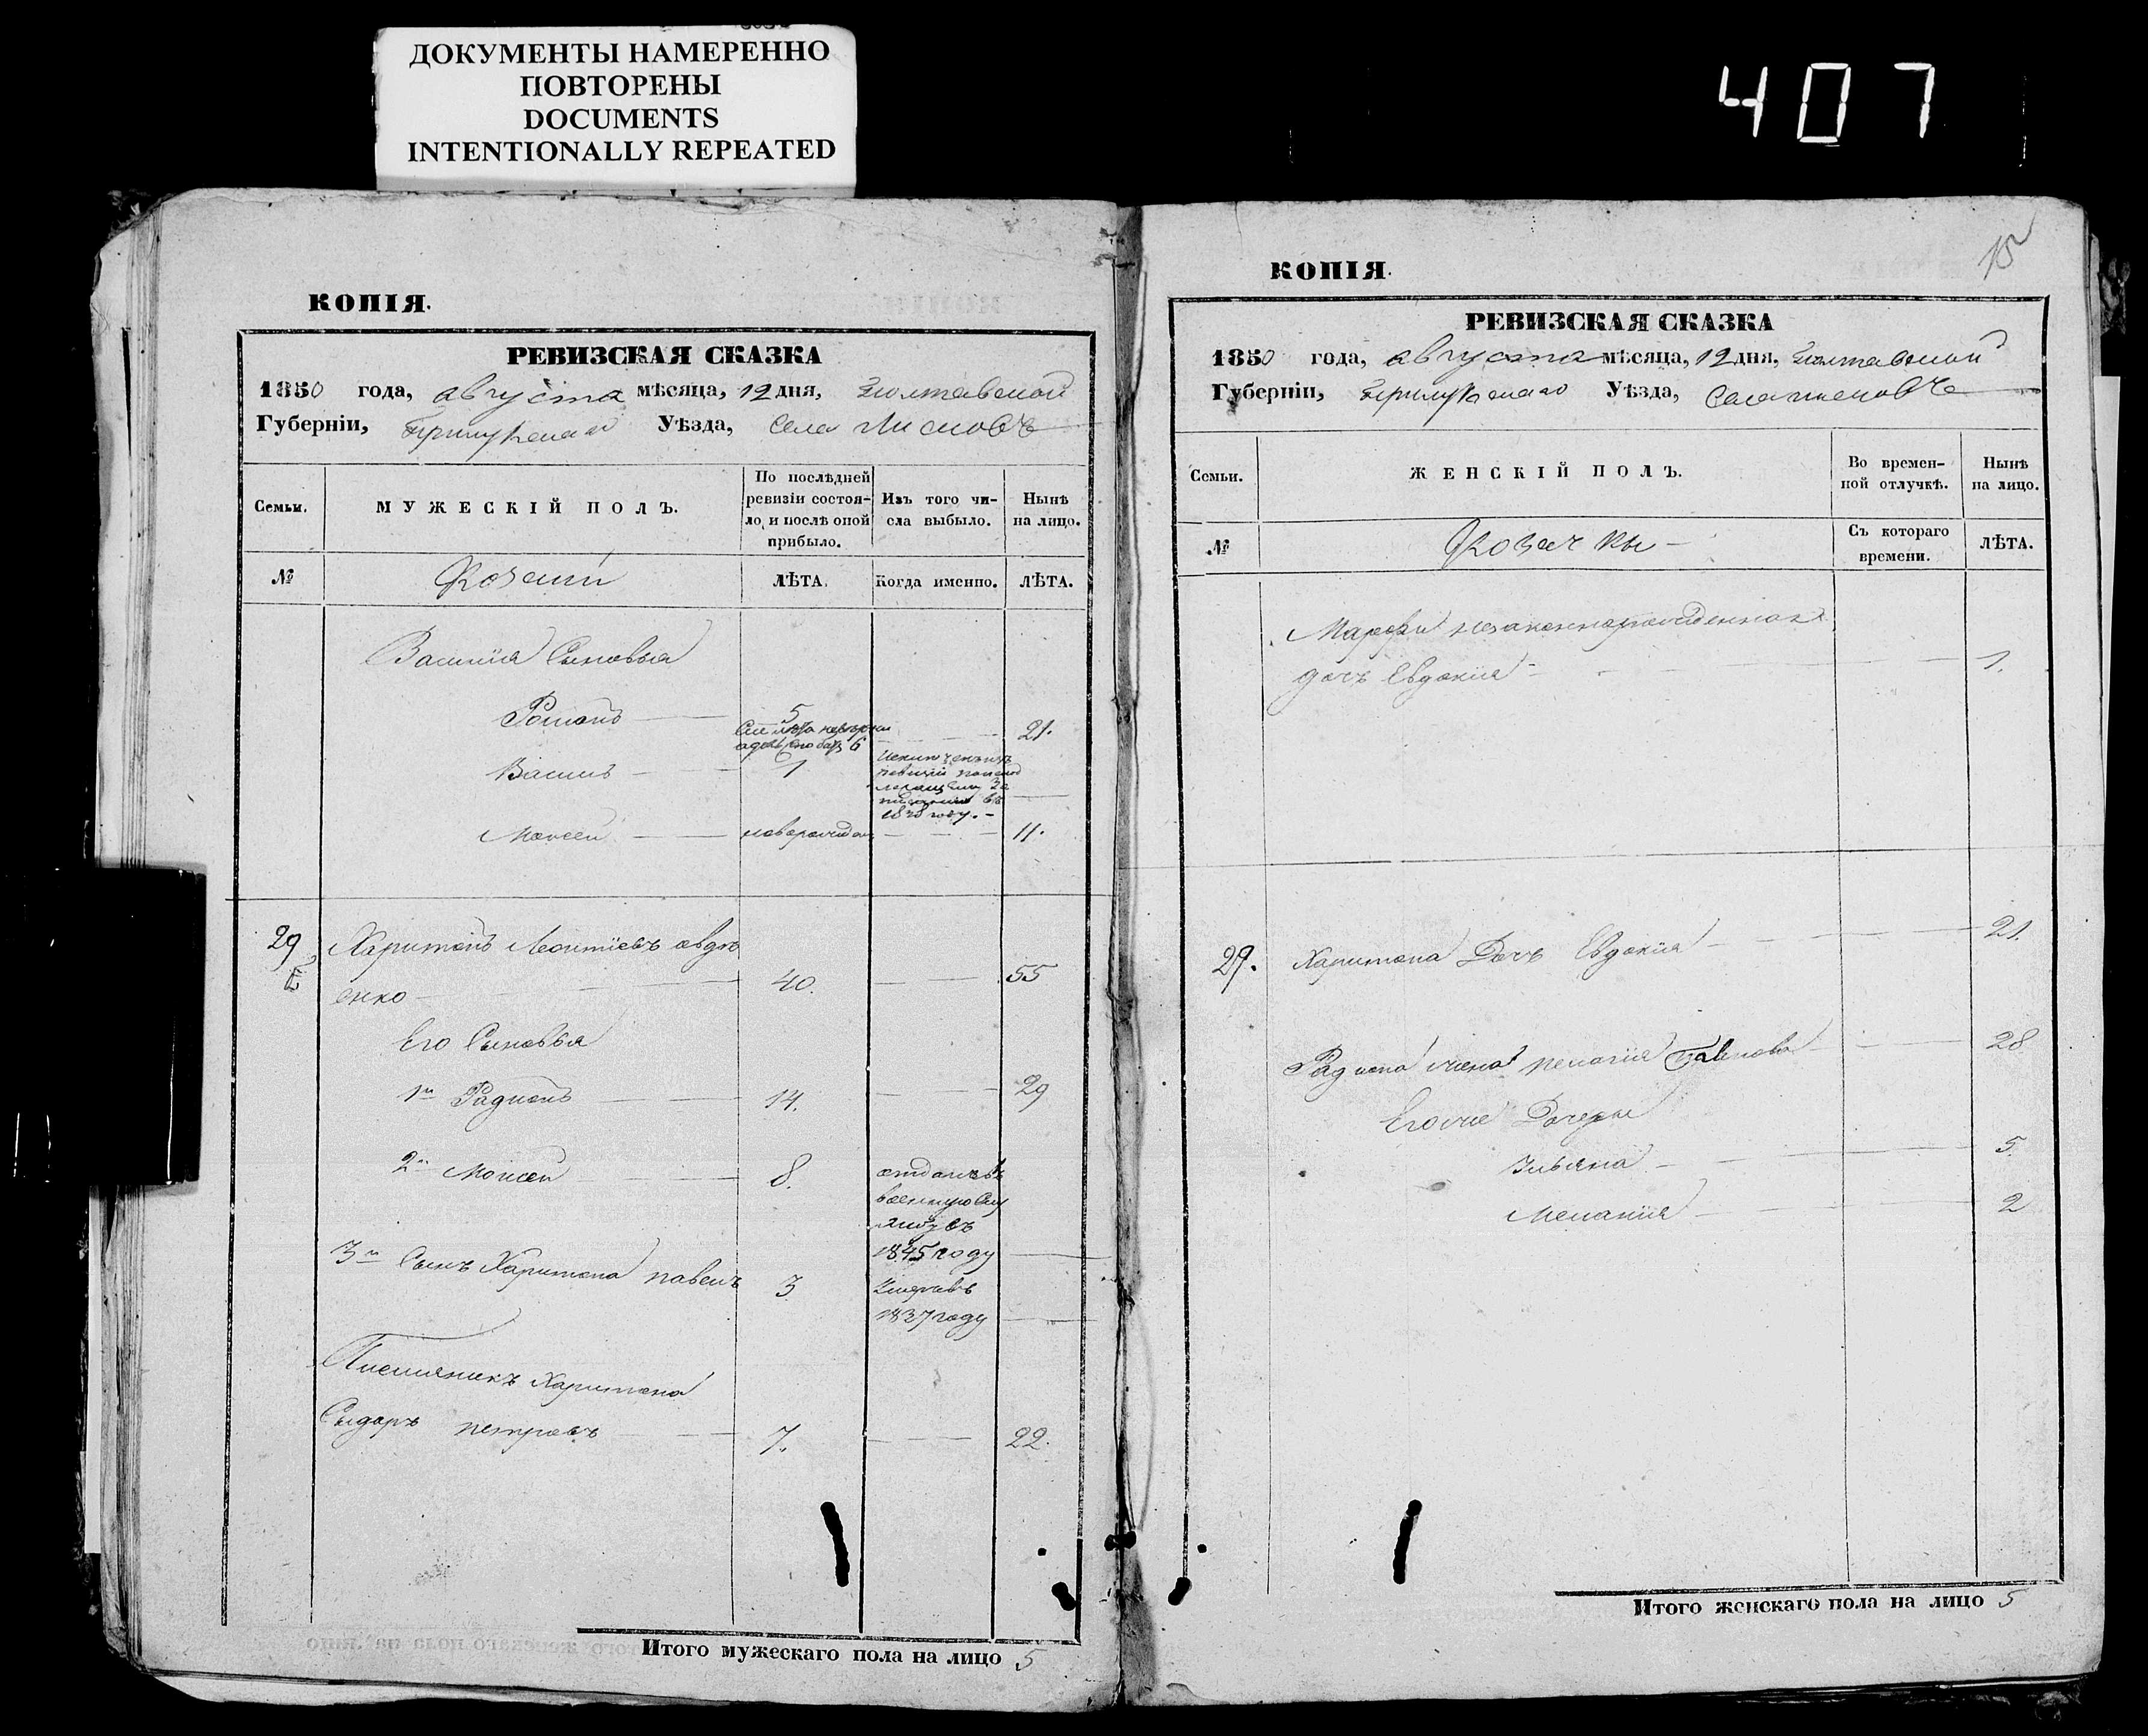 ДОКУМЕНТЫ НАМЕРЕННО
ПОВТОРЕНЫ
DOCUMENTS
INTENTIONALLY REPEATED
407
КОПІЯ.
РЕВИЗСКАЯ СКАЗКА
1850 года, августа мѣсяца, 12 дня, Полтавской
Губерніи, Прилукскаго Уѣзда, села
Семьи.
МУЖЕСКІЙ ПОЛЪ.
По послѣдней
ревизіи состоя-
ло, и послѣ оной
прибыло.
Изъ того чи-
сла выбыло.
Нынѣ
на лицо.
№
Козаки
ЛѢТА.
Когда именно.
ЛѢТА.
Василія Сыновья
Романъ 5 21.
6
Василь 1
Моисей новорожден 11.
29 Харитонъ Леонтіевъ авдѣ
енко 40. 55
Его Сыновья
1й Радионъ 14. 29
2й Моисей 8. отданъ въ
военную слу
жбу въ
1845 году
3й Сынъ Харитона павелъ 3 Умеръ въ
1837 году
Племяникъ Харитона
Сыдоръ петровъ 7. 22.
Итого мужескаго пола на лицо 5
15
КОПІЯ.
РЕВИЗСКАЯ СКАЗКА
1850 года, августа мѣсяца, 12 дня, Полтавской
Губерніи, Прилукскаго Уѣзда,
Семьи.
ЖЕНСКІЙ ПОЛЪ.
Во времен-
ной отлучкѣ.
Нынѣ
на лицо.
№
Козачки
Съ котораго
времени.
ЛѢТА.
Марфы незаконнорожденная
дочь Евдокія 1.
29. Харитона Дочь Евдокія 21.
Радиона жена пелагія Павлова 28
Егожъ Дочеры
Ульяна 5
Меланія 2
Итого женскаго пола на лицо 5